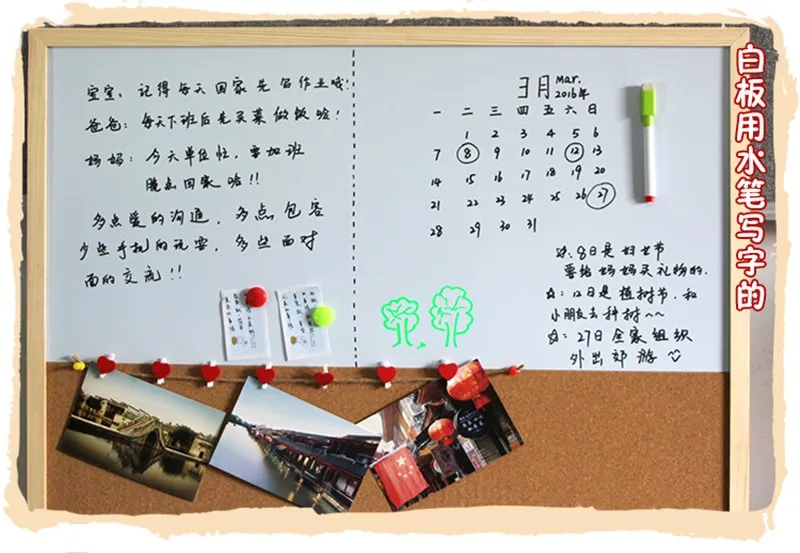 宝宝：记得每天回家先写作业哦！
爸爸：每天下班后先买菜做饭哈！
妈妈：今天单位忙，要加班
晚点回家哈！！
多点爱的沟通，多点包容
少些手机的玩耍，多些面对
面的交流！！
3月
Mar.
2016年
一 二 三 四 五 六 日
1 2 3 4 5 6
7 8 9 10 11 12 13
14 15 16 17 18 19 20
21 22 23 24 25 26 27
28 29 30 31
☆：8日是妇女节
要给妈妈买礼物的.
☆：12日是植树节，和
小朋友去种树~~
☆：27日全家组织
外出郊游
白板用水笔写字的